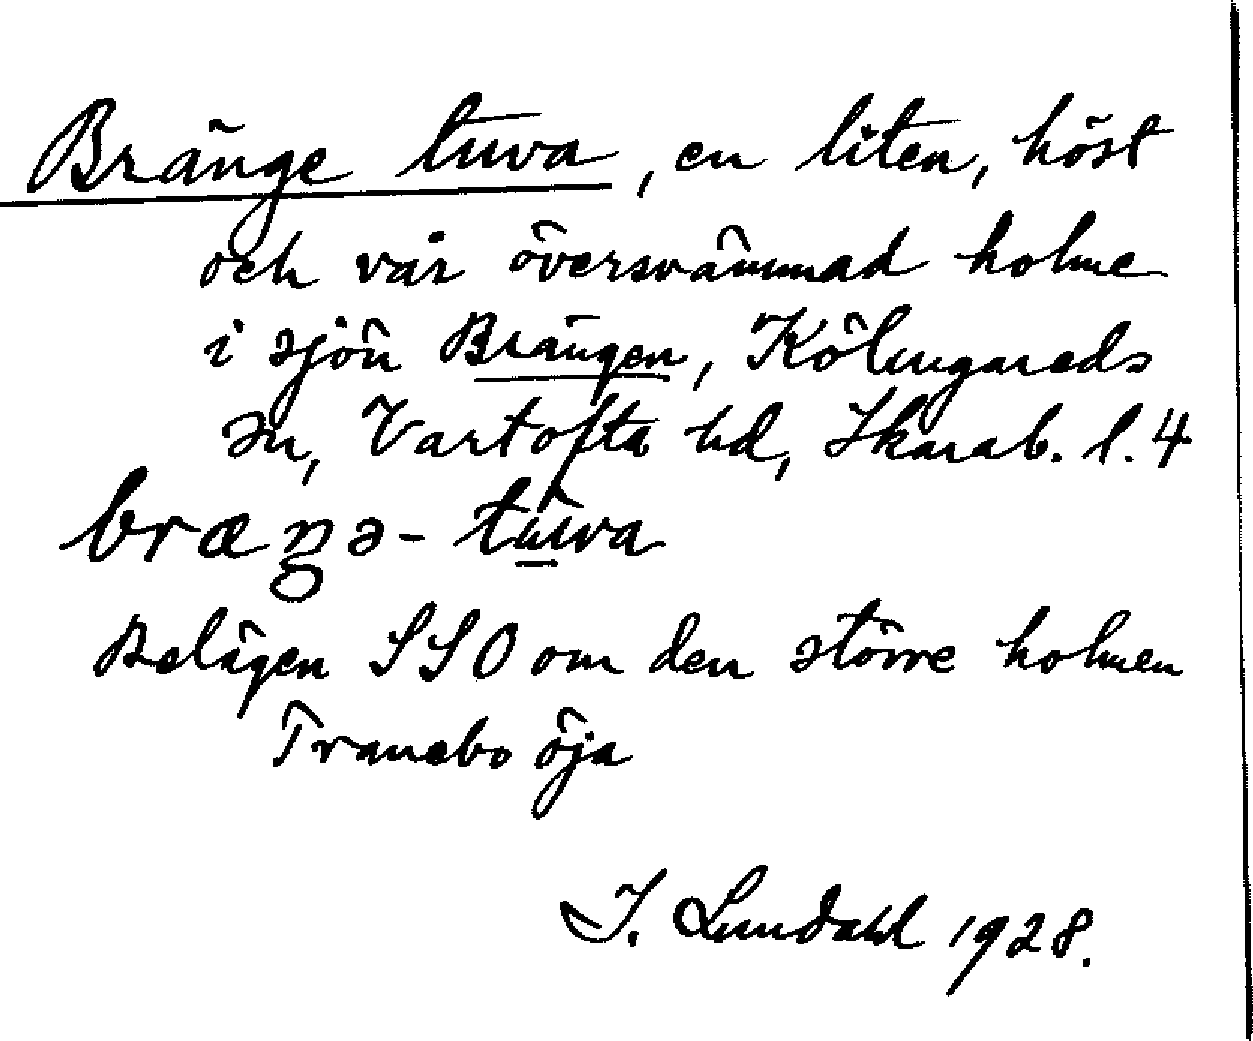 Bränge tuva, en liten, höst
och vår översvämmad holme
i sjön Brängen, Kölingareds
sn, Vartofta hd, Skarab. l. 4
bræŋə- tùva
Belägen SSO om den större holmen
Tranebo öja
I. Lundahl 1928.